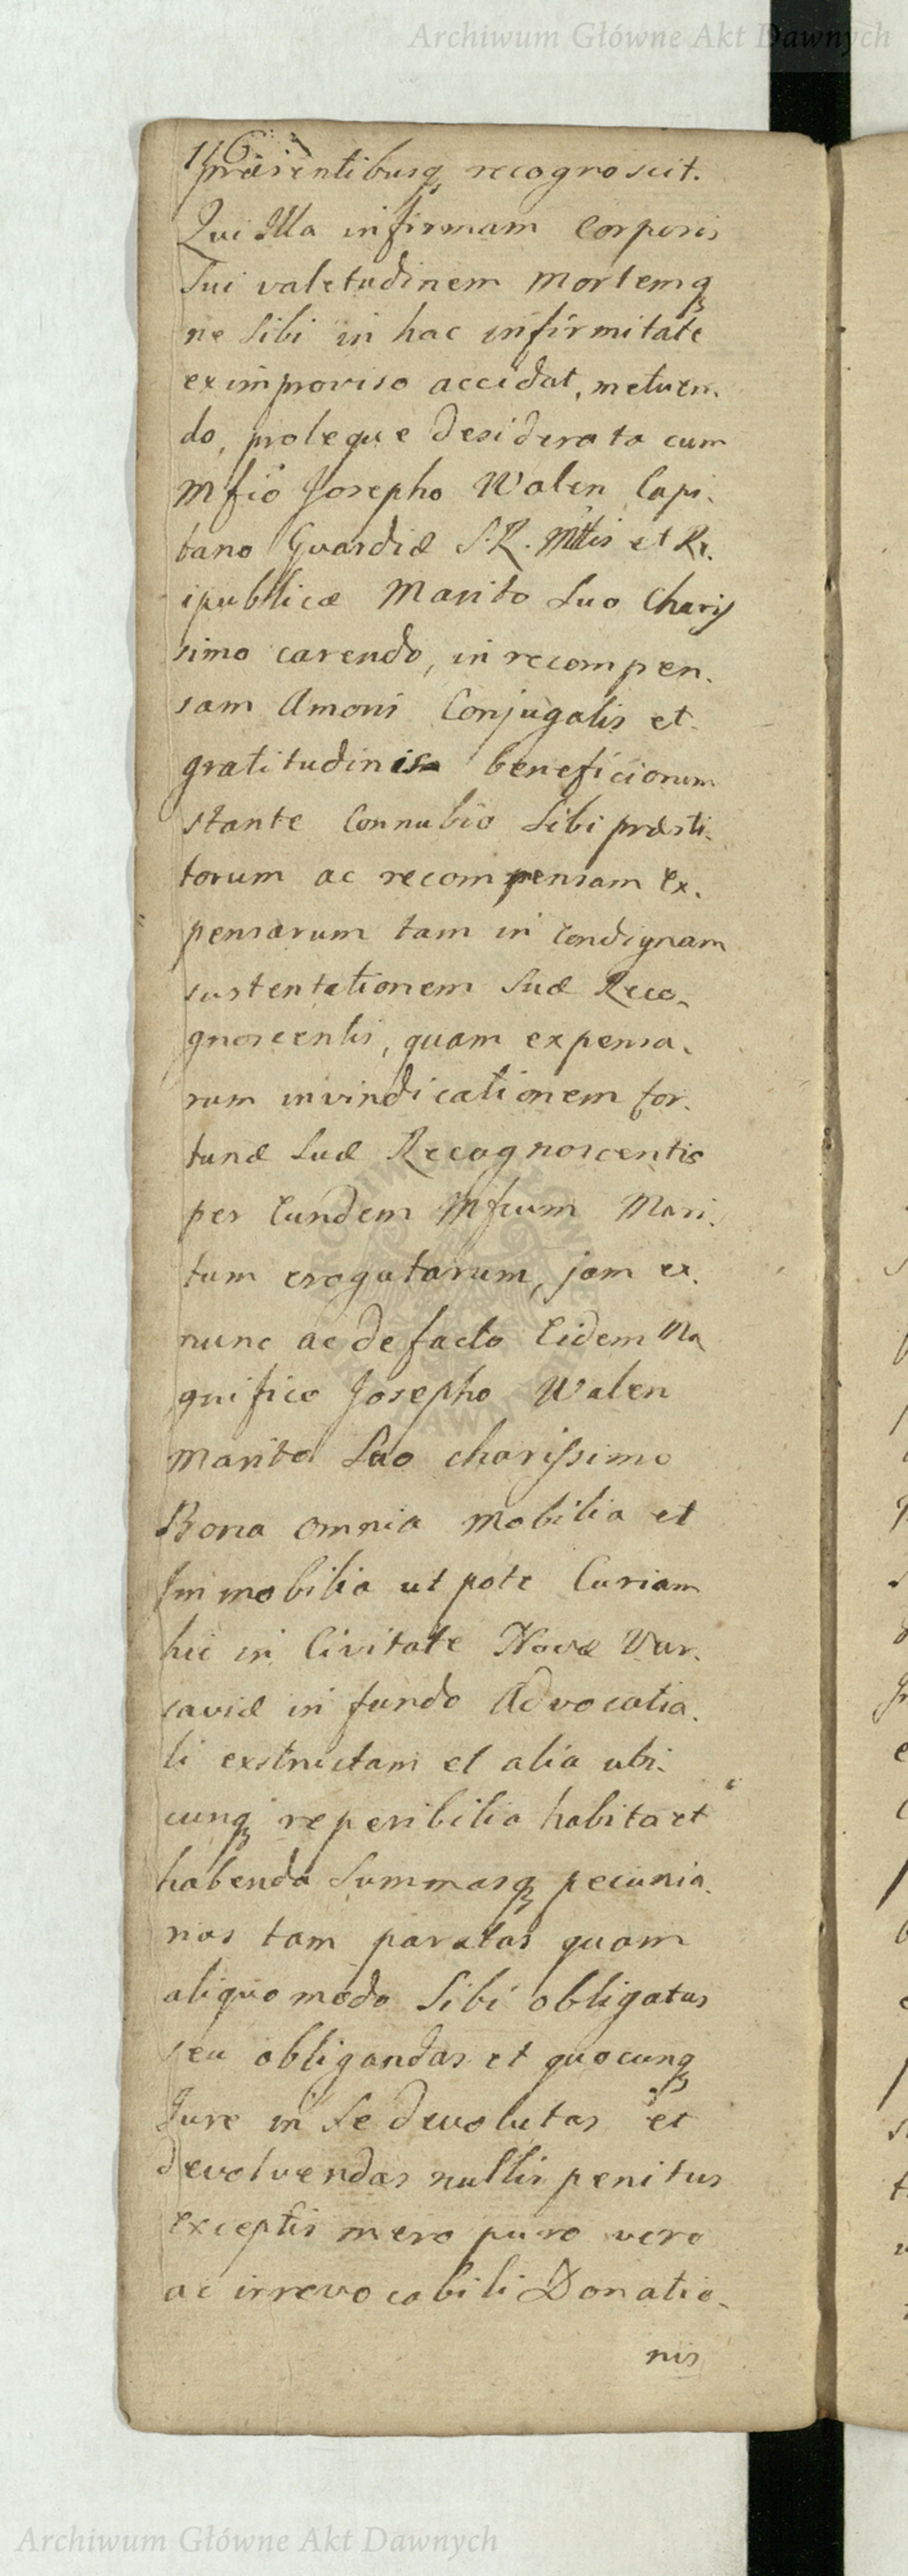 Archiwum Główne Akt Dawnych
116
præsentibusq recognoscit.
Qui Illa infirmam Corporis
Sui valetudinem mortemq
ne Sibi in hac infirmitate
ex improviso accidat, metuen.
do, proleque desiderata cum
Mfiõ Josepho Walen Capi.
tano Guardiæ S.R. Mttis et Re.
ipublicæ Marito Suo Charis
simo carendo, in recompen.
sam Amoris Conjugalis et
gratitudinis beneficiorum
stante Connubio Sibi præsti.
torum ac recompensam Ex.
pensarum tam in condignam
sustentationem Suæ Reco.
gnoscentis, quam expensa.
rum in vindicationem for.
tunæ Suæ Recognoscentis
per Eundem Mficum Mari.
tum erogatarum, jam ex.
nunc ac de facto Eidem Ma
gnifico Josepho Walen
Marito Suo charissimo
Bona omnia mobilia et
Immobilia ut pote Curiam
hic in Civitate Novæ Var.
saviæ in fundo Advocatia.
li exstructam et alia ubi.
cunq reperibilia habita et
habenda Summasq pecunia.
rias tam paratas quam
aliquo modo Sibi obligatas
seu obligandas et quocunq
Jure in Se devolutas et
devolvendas nullis penitus
exceptis mero puro vero
ac irrevocabili Donatio.
nis
ARCHIWUM GŁÓWNE AKT DAWNYCH
Archiwum Główne Akt Dawnych